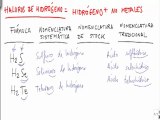 HALUROS DE HIDRÓGENO = HIDRÓGENO + NO METALES
FÓRMULA NOMENCLATURA SISTEMÁTICA NOMENCLATURA DE STOCK NOMENCLATURA TRADICIONAL
H₂S Sulfuro de hidrógeno Ácido sulfhídrico
H₂Se Seleniuro de hidrógeno Ácido selenhídrico
H₂Te Telururo de hidrógeno Ácido telurhídrico